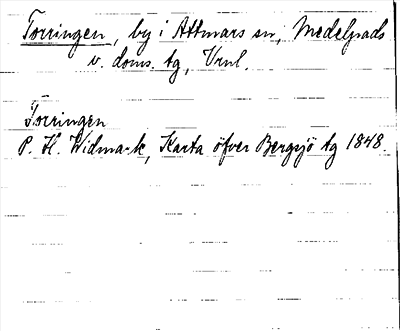 Torringen, by i Attmars sn, Medelpads
v. doms. tg, Vrnl.
Torringen
P. H. Widmark, Karta öfver Bergsjö tg 1848.